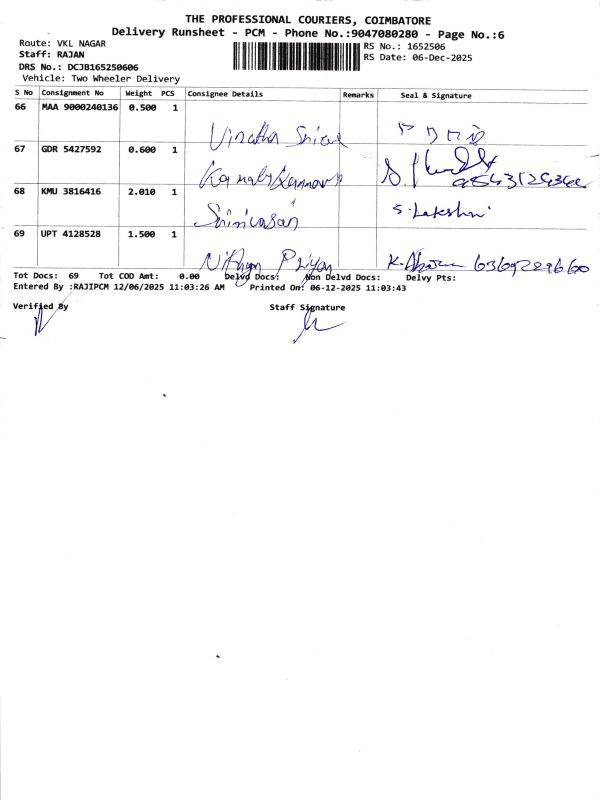 THE PROFESSIONAL COURIERS, COIMBATORE
Delivery Runsheet - PCM - Phone No.:9047080280 - Page No.:6
Route: VKL NAGAR
RS No.: 1652506
Staff: RAJAN
RS Date: 06-Dec-2025
DRS No.: DCJB165250606
Vehicle: Two Wheeler Delivery
S No Consignment No Weight PCS Consignee Details Remarks Seal & Signature
66 MAA 9000240136 0.500 1
67 GDR 5427592 0.600 1
68 KMU 3816416 2.010 1 Srinivasan S. Lakshmi
69 UPT 4128528 1.500 1 Nithyan Priyan
Tot Docs: 69 Tot COD Amt: 0.00 Delvd Docs: Non Delvd Docs: Delvy Pts:
Entered By :RAJIPCM 12/06/2025 11:03:26 AM Printed On: 06-12-2025 11:03:43
Verified By Staff Signature